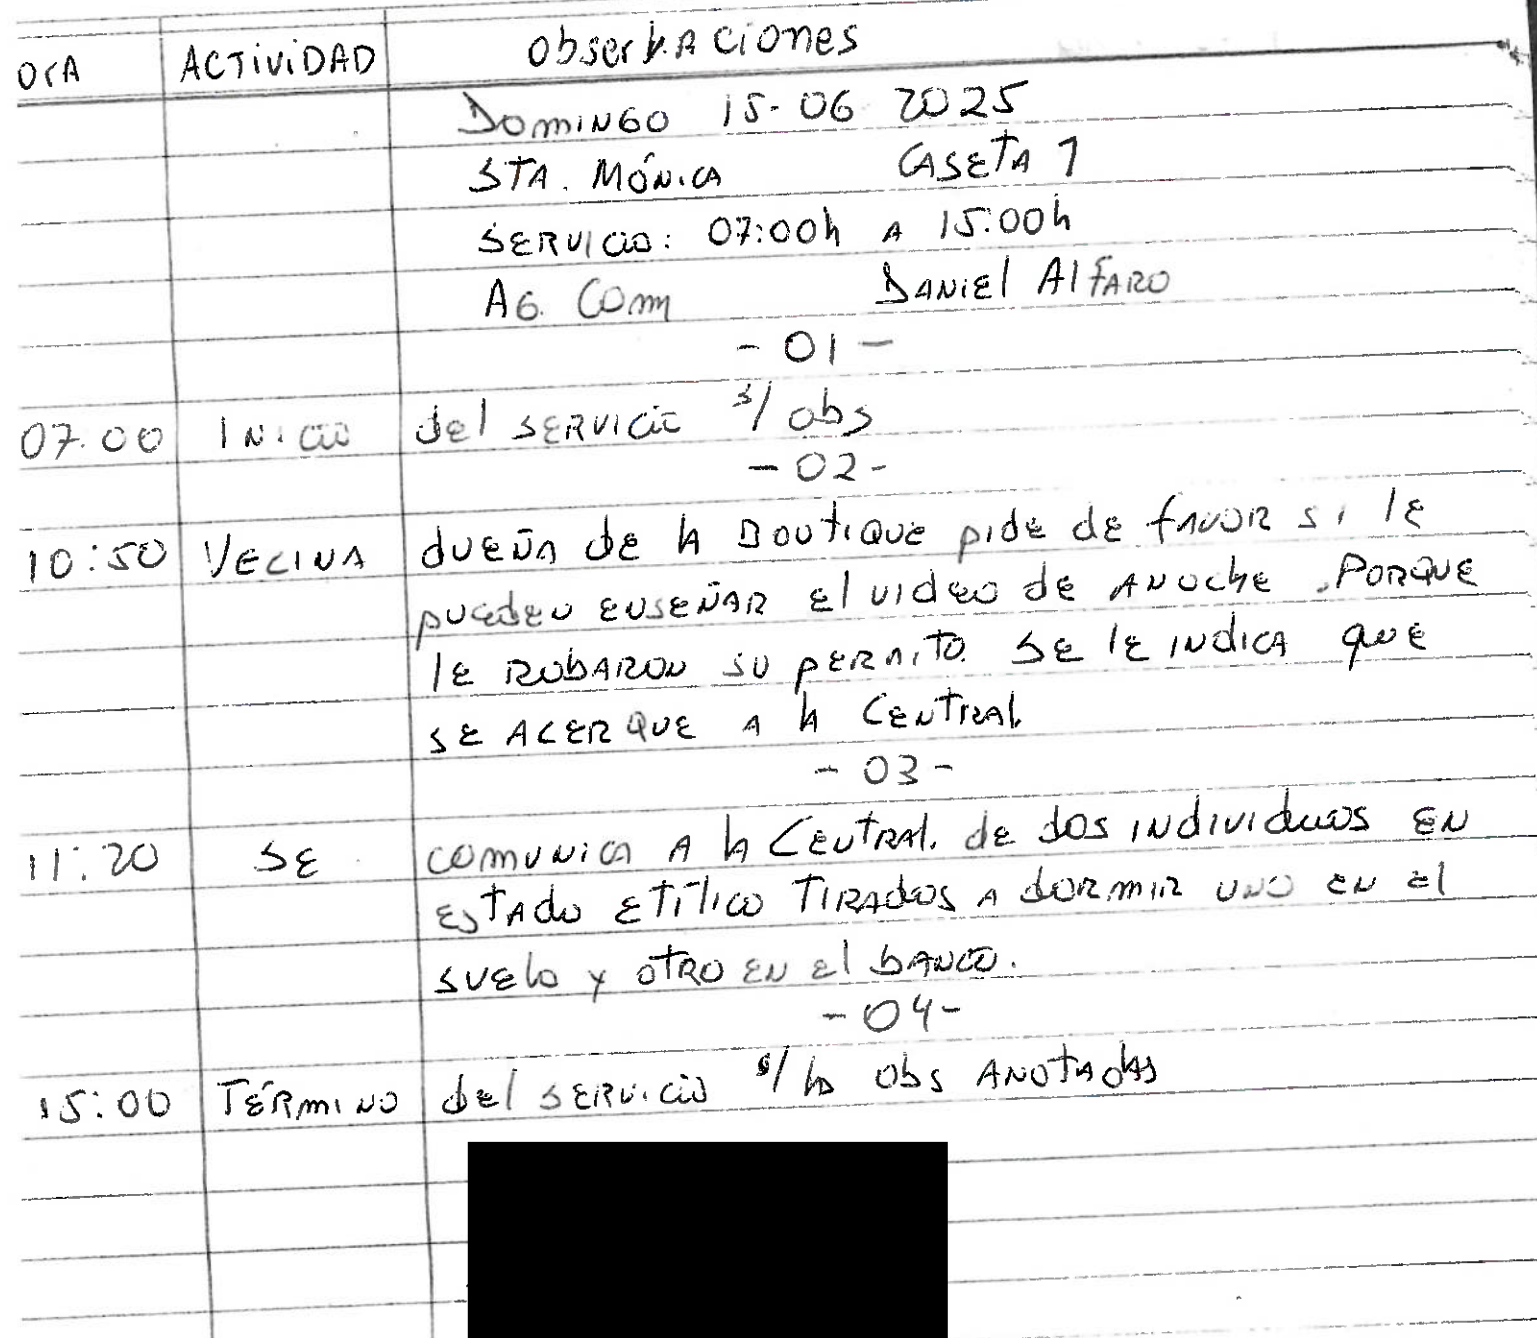 ORA ACTIVIDAD Observaciones
DOMINGO 15-06 2025
STA. MÓNICA CASETA 1
SERVICIO: 07:00h A 15:00h
AG. Com DANIEL ALFARO
- 01 -
07:00 INICIO del SERVICIO s/ obs
- 02 -
10:50 VECINA DUEÑA de la BOUTIQUE pide de favor si le
pueden ENSEÑAR el video de ANOCHE. PORQUE
le ROBARON su perrito. Se le indica que
SE ACERQUE A la CENTRAL
- 03 -
11:20 SE COMUNICA A la CENTRAL. de dos individuos EN
ESTADO ETÍLICO TIRADOS A dormir UNO EN el
suelo y OTRO EN el banco.
- 04 -
15:00 TÉRMINO del SERVICIO s/ las obs ANOTADAS